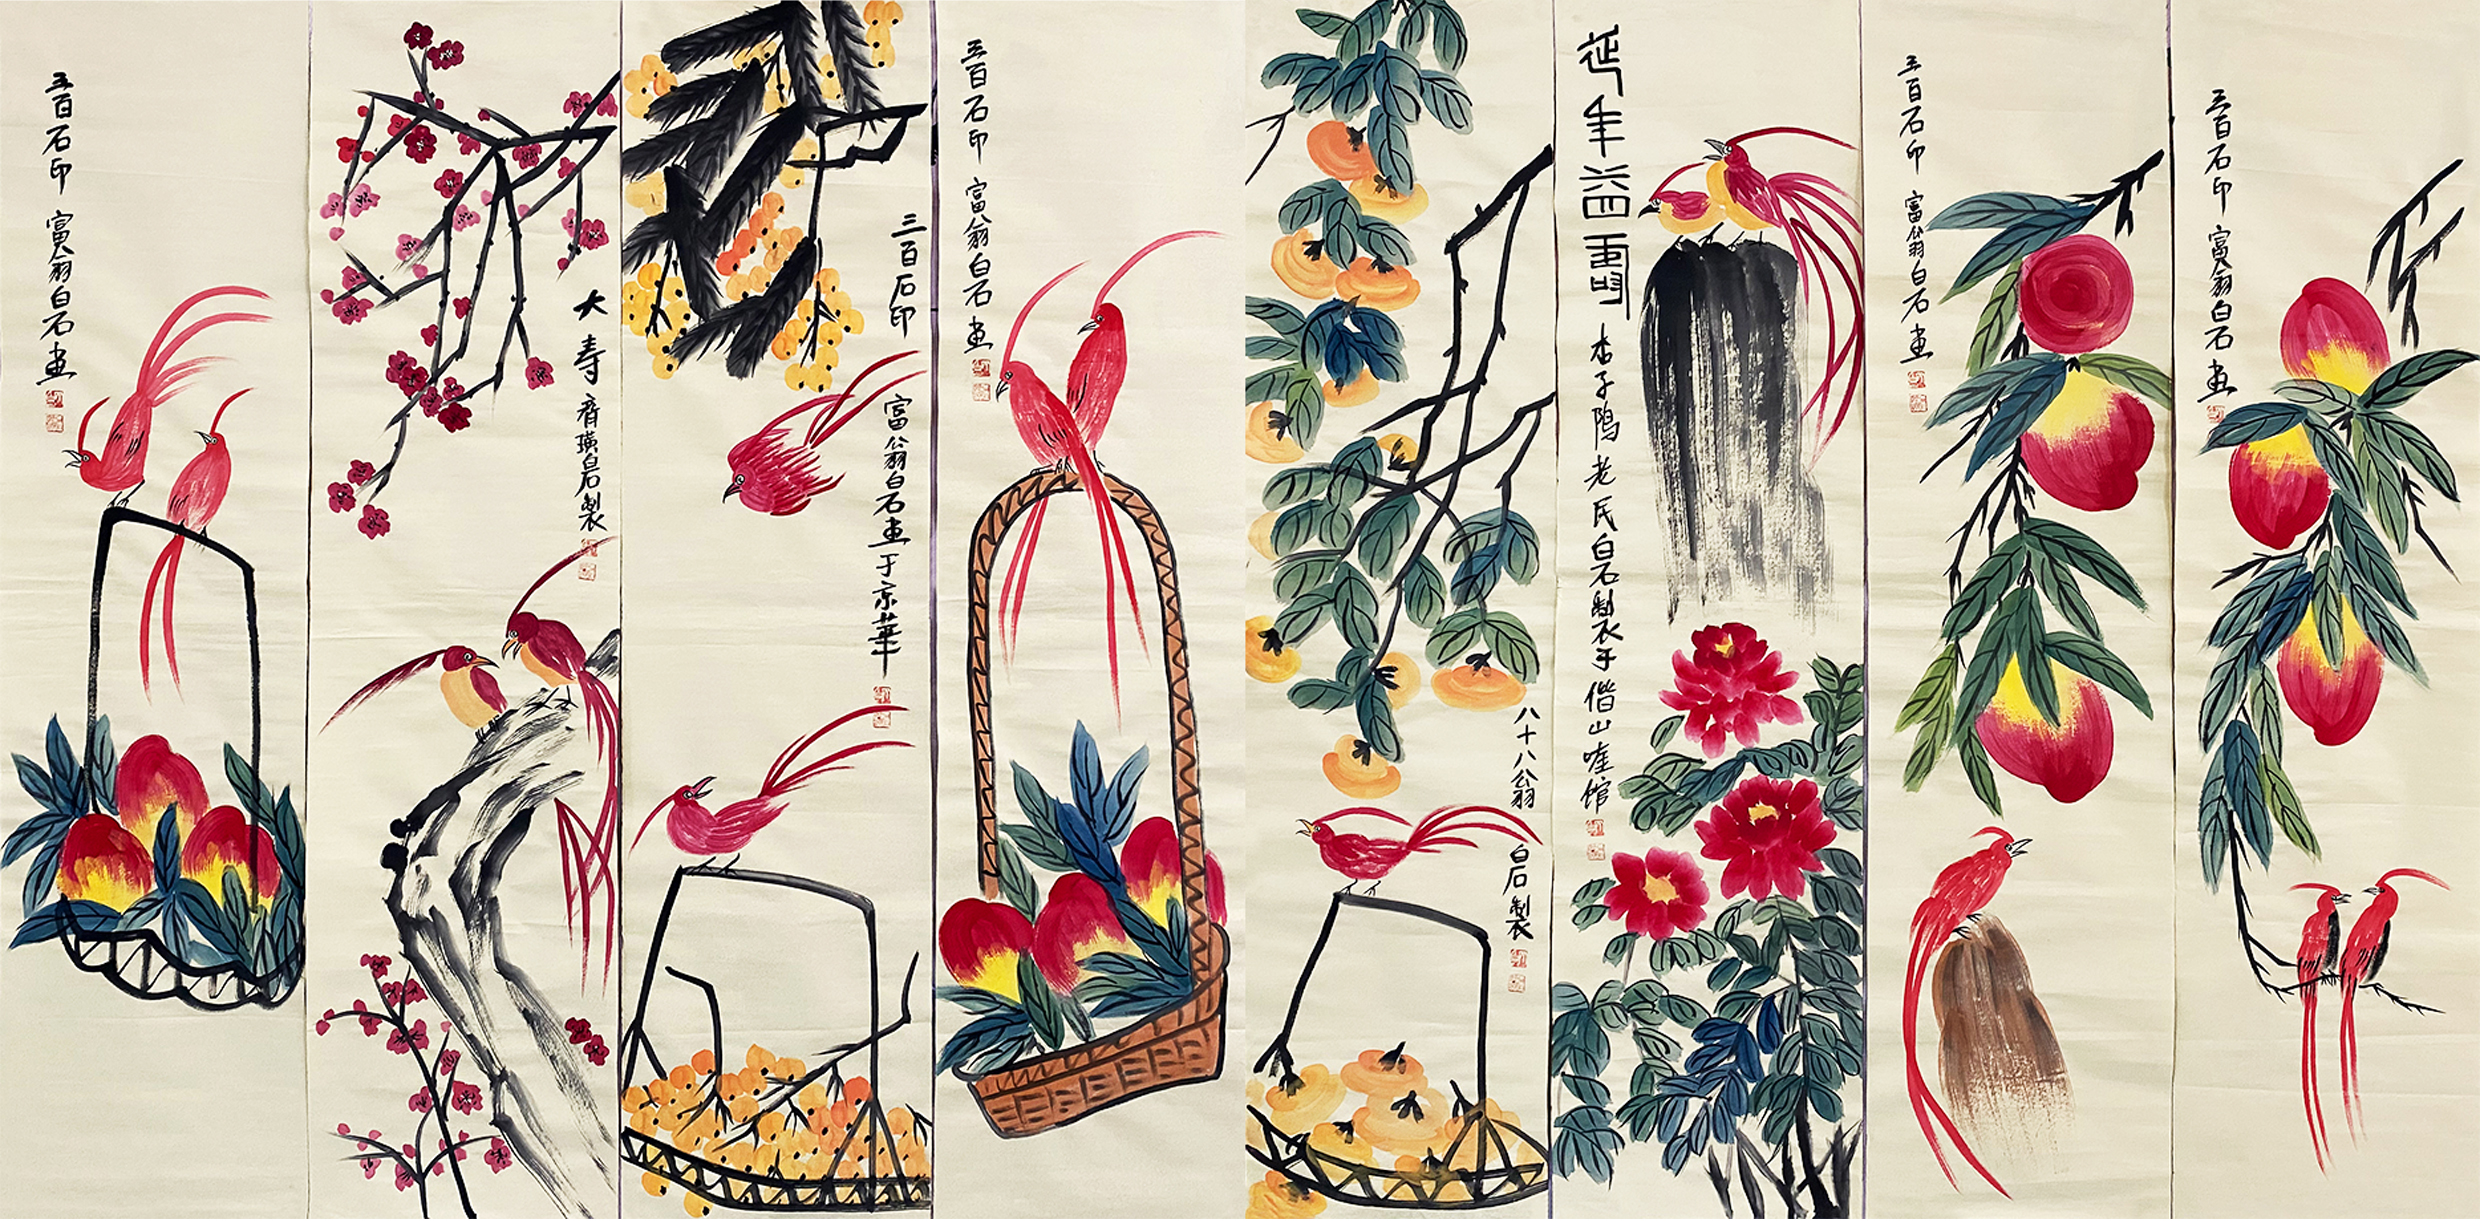 三百石印 富翁白石画
大寿 齊璜白石製
三百石印
富翁白石画于京華
三百石印 富翁白石画
八十八翁
白石製
延年益壽
杏子隖老民白石製于借山唫馆
三百石印 富翁白石画
三百石印 富翁白石画